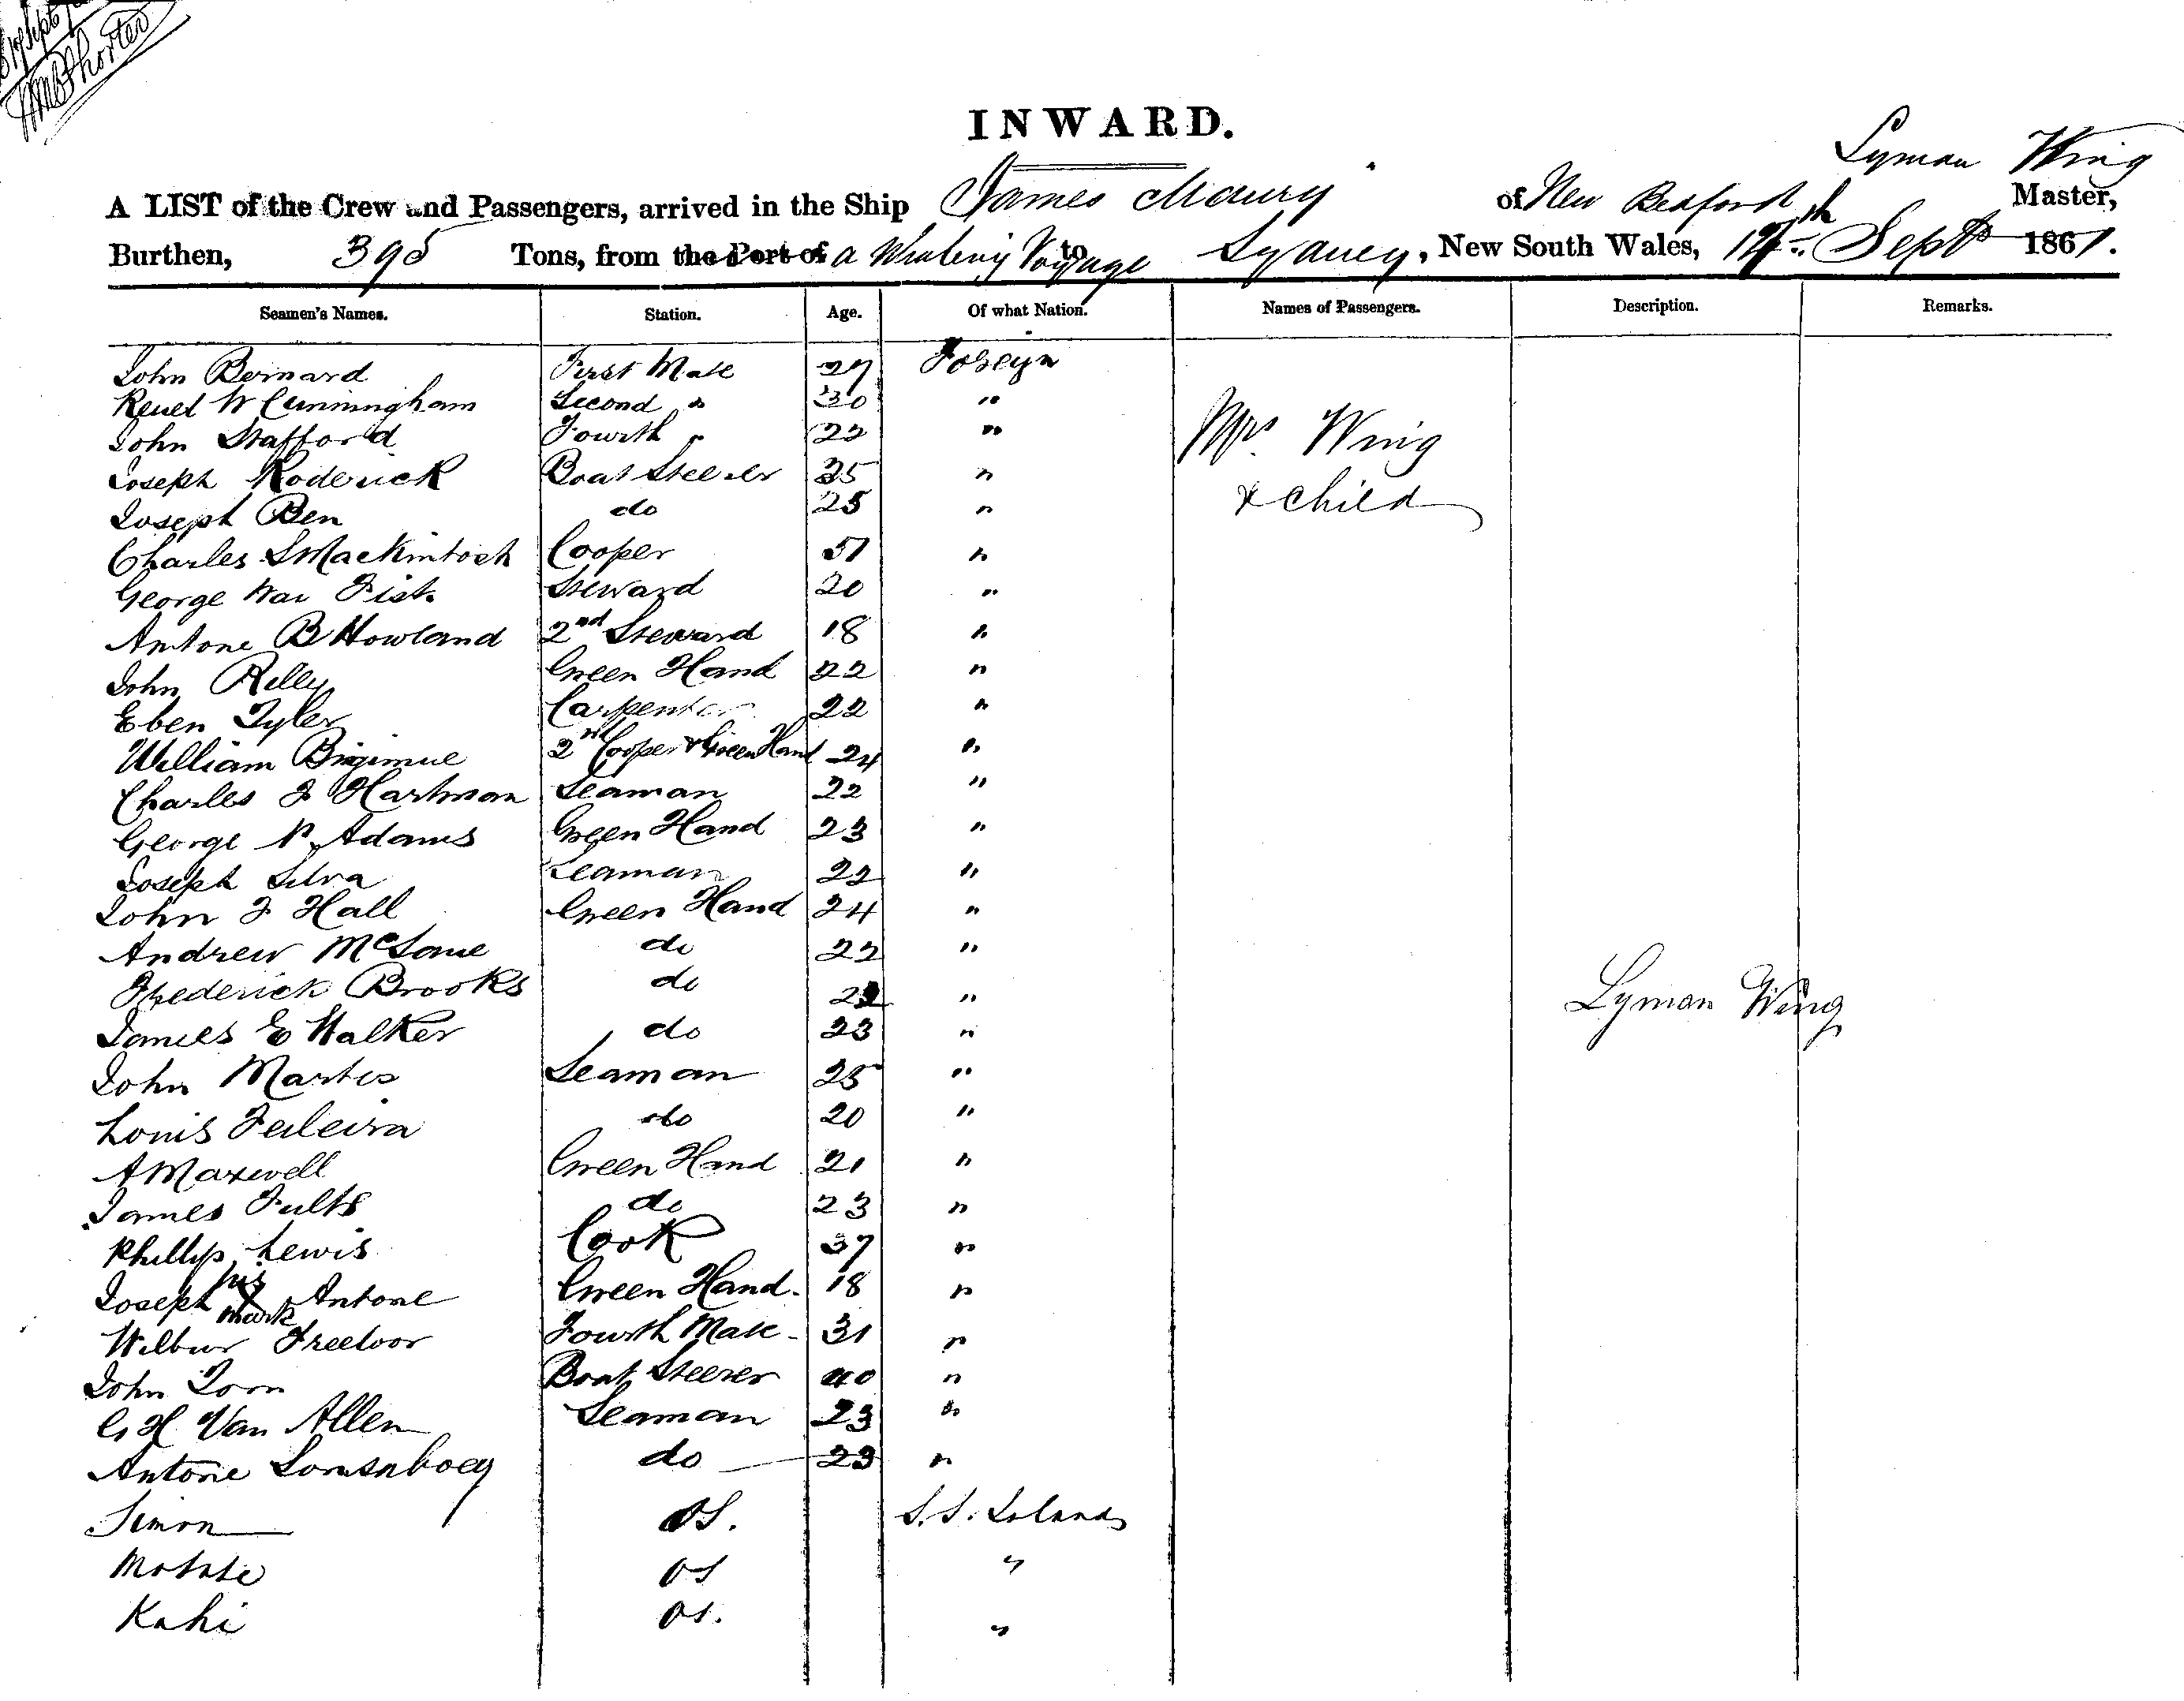 INWARD.
Lyman Wing
A LIST of the Crew and Passengers, arrived in the Ship James Maury of New Bedford Master,
Burthen, 395 Tons, from the Port of a Whaling Voyage to Sydney, New South Wales, Septr 1867.
Seamen's Names. Station. Age. Of what Nation. Names of Passengers. Description. Remarks.
John Bernard First Mate 27 Foreign
Reuel W Cunningham Second " 30 "
John Stafford Fourth " 22 " Mrs Wing
Joseph Roderick Boat Steerer 25 "
& Child
Joseph Ben do 25 "
Charles S Mackintosh Cooper 51 "
George Fish Steward 20 "
Antone B Howland 2nd Steward 18 "
John Reily Green Hand 22 "
Eben Tyler Carpenter 22 "
William 2nd Cooper & Green Hand 24 "
Charles F Hartman Seaman 22 "
George N Adams Green Hand 23 "
Joseph Silva Seaman 22 "
John F Hall Green Hand 24 "
Andrew do 22 "
Frederick Brooks do "
Lyman Wing
James E Walker do 23 "
John Martes Seaman 25 "
Louis do 20 "
A Maxwell Green Hand 21 "
James Fults do 23 "
Phillip Lewis Cook 37 "
Joseph his X mark Antone Green Hand. 18 "
Wilbur Fourth Mate - 31 "
John Boat Steerer 40 "
G H Van Allen Seaman 23 "
Antone do 23 "
Simon OS. S.S. Islands
OS "
Kahi OS. "